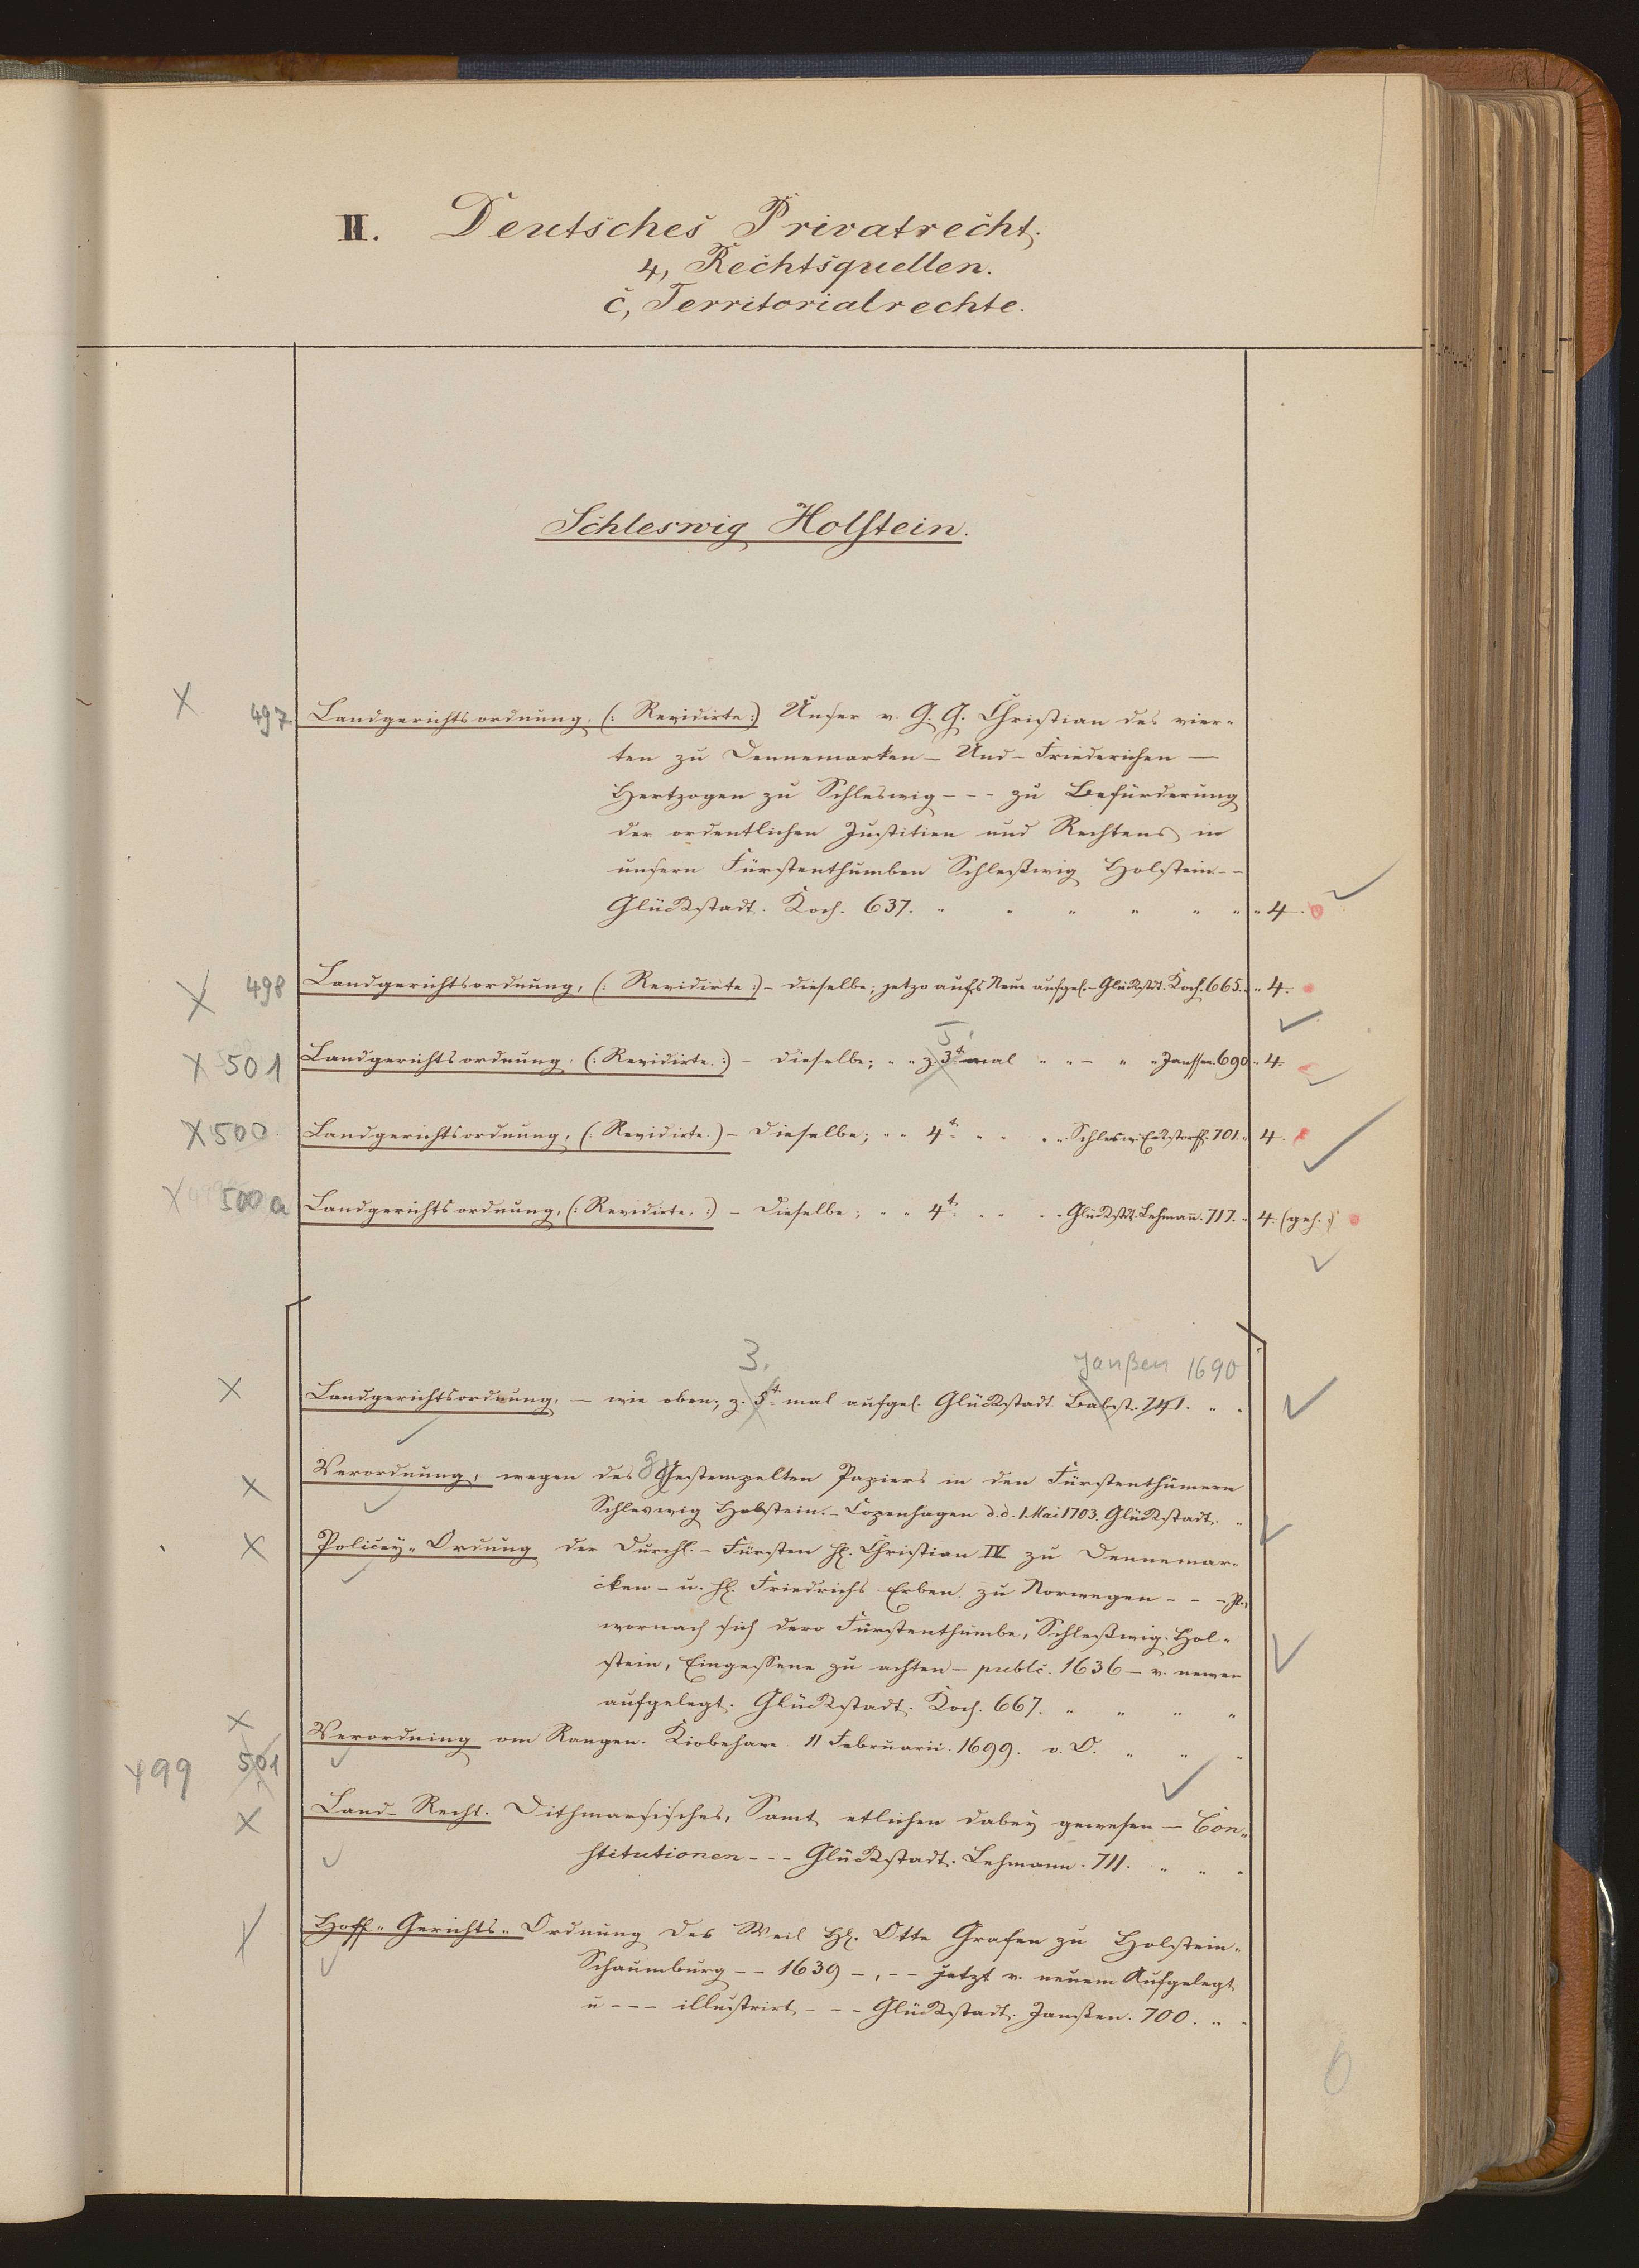 II. Deutsches Privatrecht.
4, Rechtsquellen.
c, Territorialrechte.
Schleswig Holstein.
497 Landgerichtsordnung, (: Revidirte :) Unser v. G. G. Christian des vier-
ten zu Dennemarken – Und – Friederichen –
Hertzogen zu Schleswig - - - zu Befürderung
der ordentlichen Justitien und Rechtens in
unsern Fürstenthumben Schleßwig Holstein - -
Glückstadt. Koch. 637. " " " " " " " 4.
498 Landgerichtsordnung, (: Revidirte :) – dieselbe; jetzo aufs Neue aufgel. – Glückstdt. Koch. 665. " 4.
5.
501 Landgerichtsordnung, (: Revidirte. :) – dieselbe; " " z. 3t. mal " " – " " Janssen. 690 " 4.
500 Landgerichtsordnung, (: Revidirte.) – Dieselbe; " " 4t. " " " " Schlesw. Eckstorff. 701. " 4.
500a Landgerichtsordnung, (: Revidirte. :) – Dieselbe; " " 4t. " " " " Glückstdt. Lehmann. 717. " 4. (geh.)
3. Janßen 1690
Landgerichtsordnung, – wie oben; z. 5t. mal aufgel. Glückstadt. Babst. 741. " "
Verordnung, wegen des Gestempelten Papiers in den Fürstenthümern
Schleswig Holstein. – Copenhagen d. d. 1. Mai 1703. Glückstadt. "
Policey-Ordung der Durchl. – Fürsten H. Christian IV zu Dennemar-
cken – u. H. Friedrichs Erben zu Norwegen - - - p.,
wornach sich dero Fürstenthumbe, Schleßwig. Hol-
stein, Eingessene zu achten – public. 1636 – v. newen
aufgelegt. Glückstadt. Koch. 667. " " " "
Verordning om Rangen. Kiobehavn. 11 Februarii. 1699. o. O. " " "
499 501
Land-Recht. Dithmarsisches, Samt etlichen dabey gewesen – Con-
stitutionen - - - Glückstadt. Lehmann. 711. " " "
Hoff-Gerichts-Ordnung des Weil H. Otte Grafen zu Holstein-
Schaumburg - - 1639 -, - - jetzt v. neuem Aufgelegt
u - - - illustrirt - - - Glückstadt. Janßen. 700. " "
6